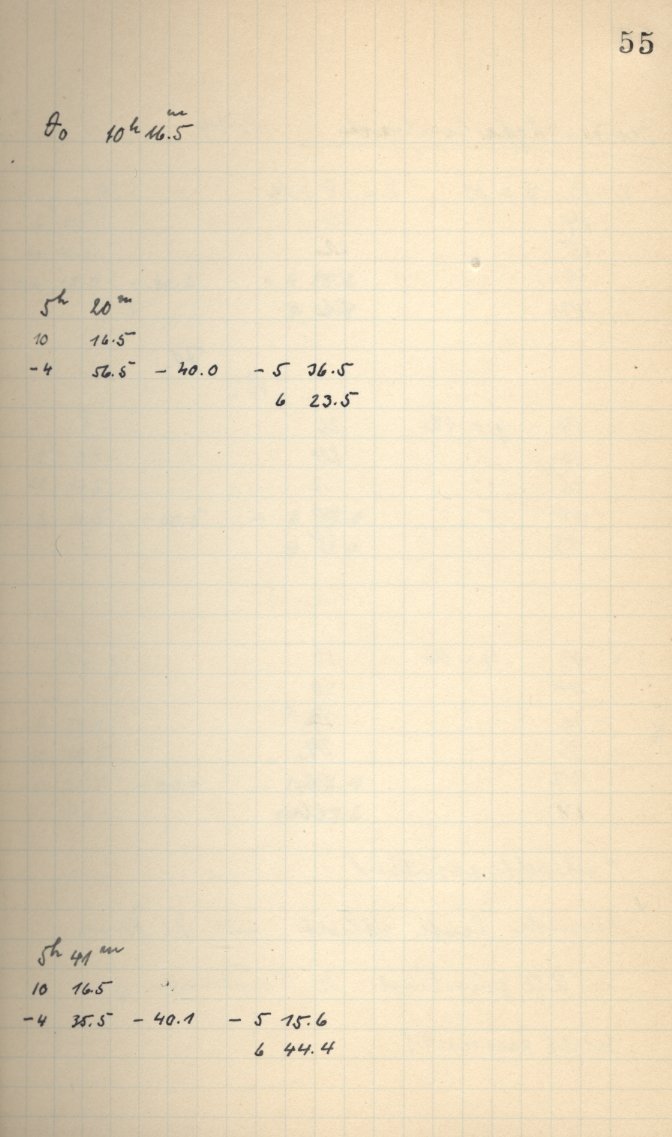 55
θ₀ 10ʰ 16.5ᵐ
5ʰ 20ᵐ
10 16.5
-4 56.5 - 40.0 - 5 36.5
6 23.5
5ʰ 41ᵐ
10 16.5
-4 35.5 - 40.1 - 5 15.6
6 44.4